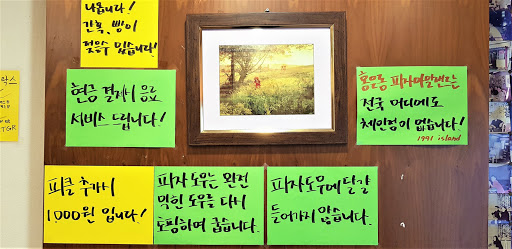 나옵니다!
간혹, 빵이
젖을수 있습니다!
락스
TGR
현금 결제시 음료
서비스 드립니다!
홍은동 피자아일랜드는
전국 어디에도
체인점이 없습니다!
1991 island
피클 추가시
1000원 입니다!
피자 도우는 완전
익힌 도우를 다시
토핑하여 굽습니다.
피자도우에 달걀
들어가지 않습니다.